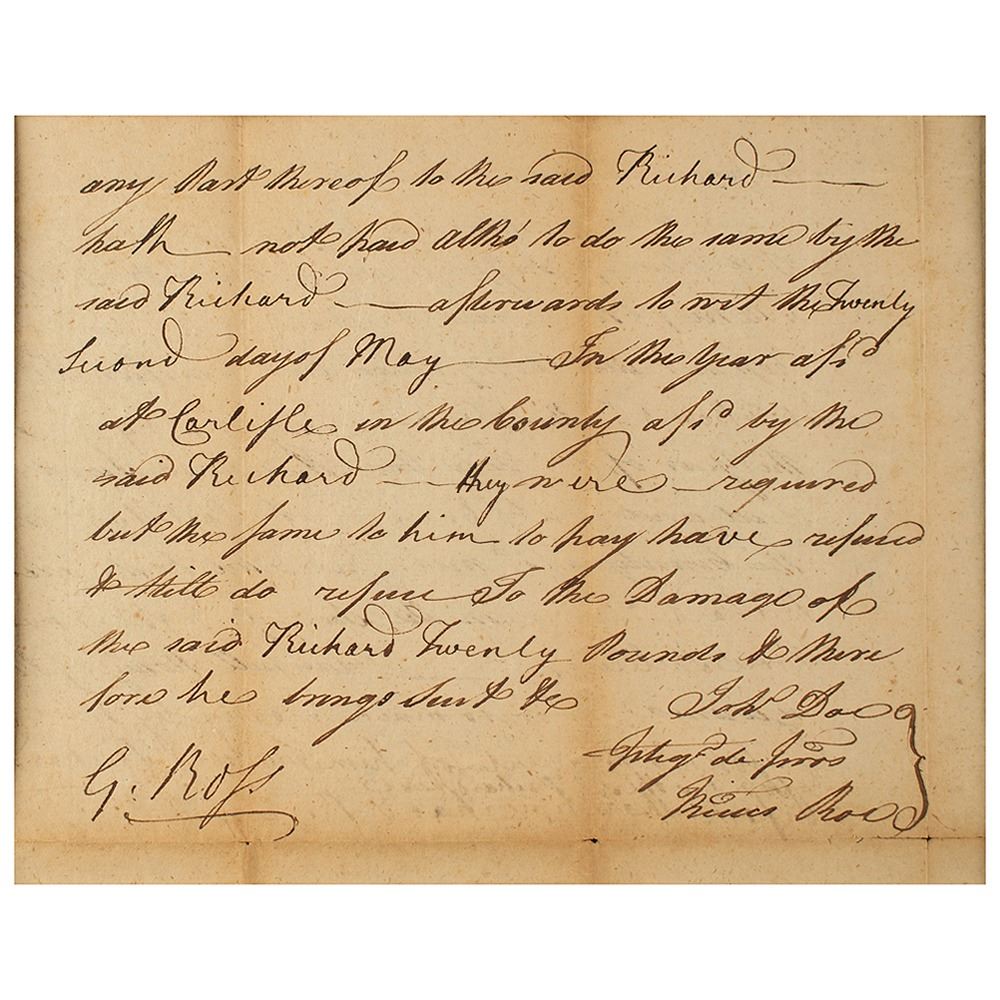 any Part thereof to the said Richard
hath not paid altho' to do the same by the
said Richard afterwards to wit the Twenty
Second day of May In the Year afsd
at Carlisle in the County afsd by the
said Richard they were required
but the same to him to pay have refused
& Still do refuse To the Damage of
the said Richard Twenty Pounds & there
fore he brings Suit &c
John Doe
Pleg.s de pros
Richd Roe
G. Ross